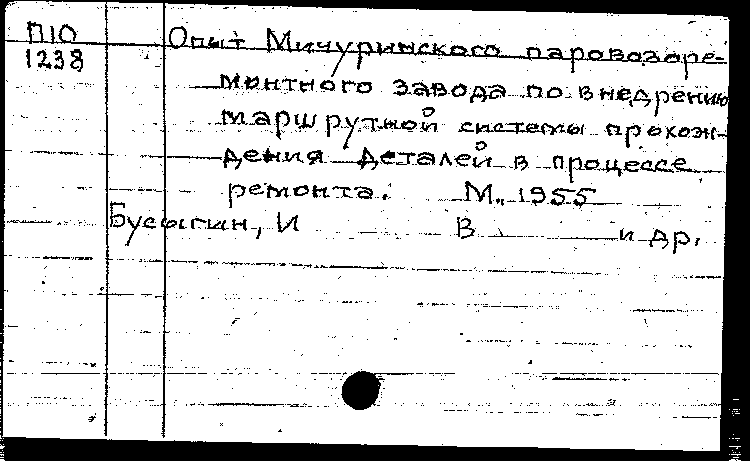 П10
1238
Опыт Мичуринского паровозоре-
монтного завода по внедрению
маршрутной системы прохож-
дения деталей в процессе
ремонта. М., 1955
Бусыгин, И В и др.